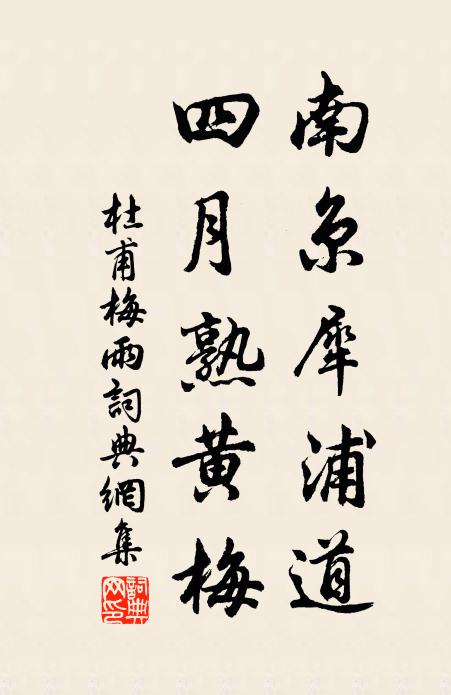 南京犀浦道
四月熟黄梅
杜甫梅雨詞典網集
詞典網印